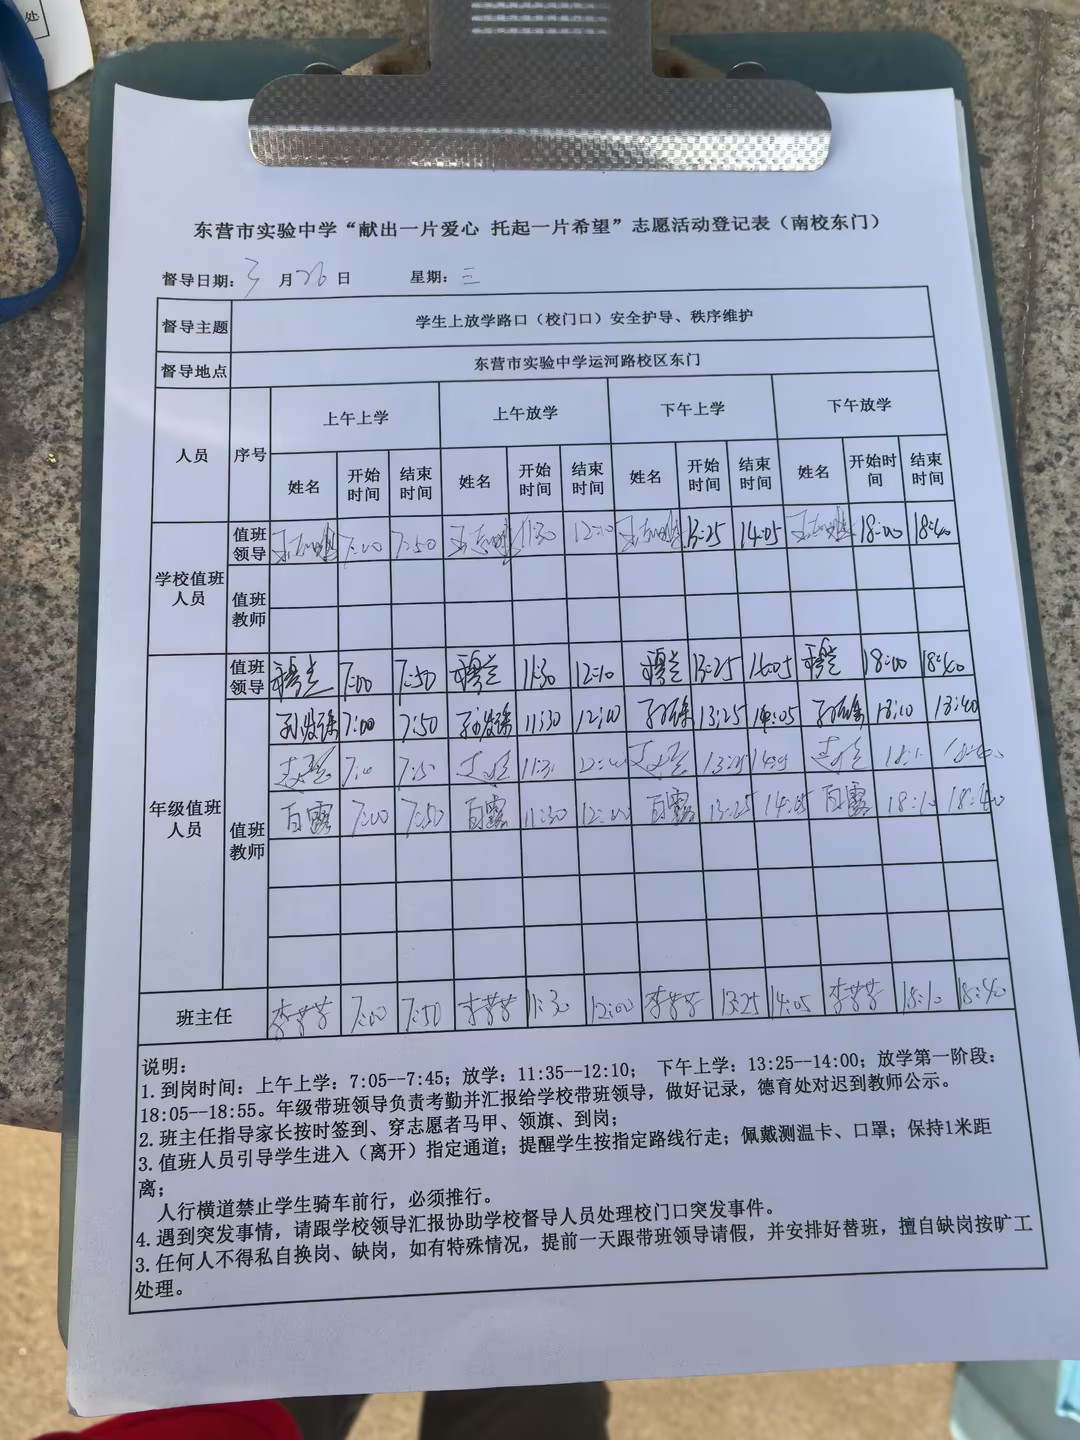 处
东营市实验中学“献出一片爱心 托起一片希望”志愿活动登记表（南校东门）
督导日期：3月26日 星期：三
督导主题 学生上放学路口（校门口）安全护导、秩序维护
督导地点 东营市实验中学运河路校区东门
人员 序号 上午上学 上午放学 下午上学 下午放学
姓名 开始时间 结束时间 姓名 开始时间 结束时间 姓名 开始时间 结束时间 姓名 开始时间 结束时间
学校值班人员 值班领导 7:00 7:50 11:30 12:10 13:25 14:05 18:00 18:40
值班教师
年级值班人员 值班领导 7:00 7:50 11:30 12:10 13:25 14:05 18:00 18:40
值班教师 7:00 7:50 11:30 12:10 13:25 14:05 18:10 18:40
百露 7:00 7:50 百露 11:30 12:00 百露 13:25 14:05 百露 18:10 18:40
班主任 李芳芳 7:00 7:50 李芳芳 11:30 12:00 李芳芳 13:25 14:05 李芳芳 18:10 18:40
说明：
1.到岗时间：上午上学：7:05--7:45；放学：11:35--12:10； 下午上学：13:25--14:00；放学第一阶段：
18:05--18:55。年级带班领导负责考勤并汇报给学校带班领导，做好记录，德育处对迟到教师公示。
2.班主任指导家长按时签到、穿志愿者马甲、领旗、到岗；
3.值班人员引导学生进入（离开）指定通道；提醒学生按指定路线行走；佩戴测温卡、口罩；保持1米距
离；
人行横道禁止学生骑车前行，必须推行。
4.遇到突发事情，请跟学校领导汇报协助学校督导人员处理校门口突发事件。
3.任何人不得私自换岗、缺岗，如有特殊情况，提前一天跟带班领导请假，并安排好替班，擅自缺岗按旷工
处理。